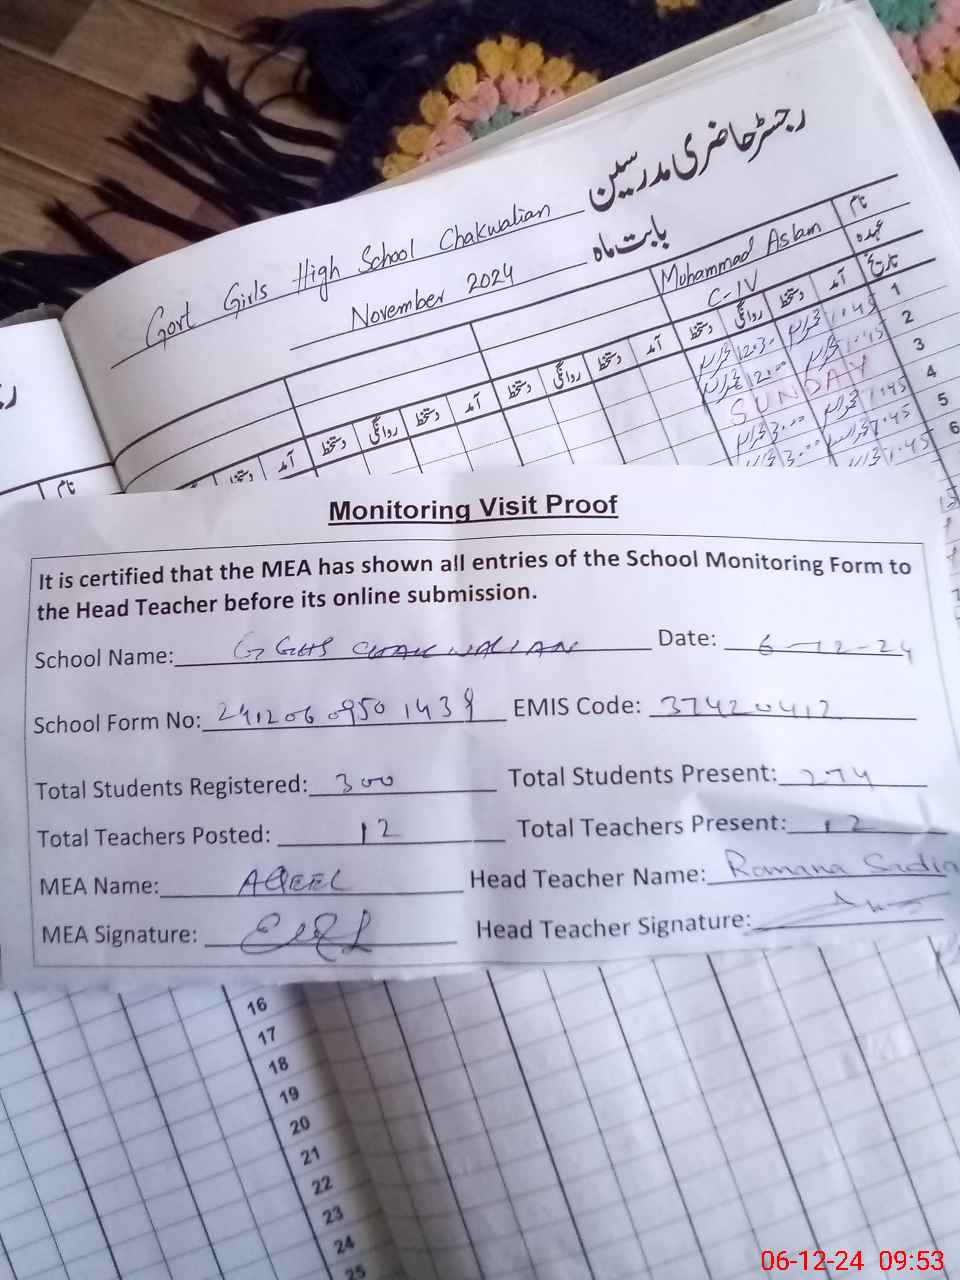 رجسٹر حاضری مدرسین
Govt Girls High School Chakwalian
بابت ماہ November 2024
نام Muhammad Aslam
عہدہ C-IV
تاریخ آمد دستخط روانگی دستخط آمد دستخط روانگی دستخط آمد دستخط روانگی دستخط آمد
1 7:45 12:30
2 7:45 12:00
3 SUNDAY
4 7:45 3:00
5 7:45 3:00
6 7:45
نام
Monitoring Visit Proof
It is certified that the MEA has shown all entries of the School Monitoring Form to
the Head Teacher before its online submission.
School Name: GGHS CHAKWALIAN Date: 6-12-24
School Form No: 241206 0950 1438 EMIS Code: 37420412
Total Students Registered: 300 Total Students Present: 274
Total Teachers Posted: 12 Total Teachers Present: 12
MEA Name: AQEEL Head Teacher Name: Romana Sadia
MEA Signature: Head Teacher Signature:
16
17
18
19
20
21
22
23
24
25
06-12-24 09:53